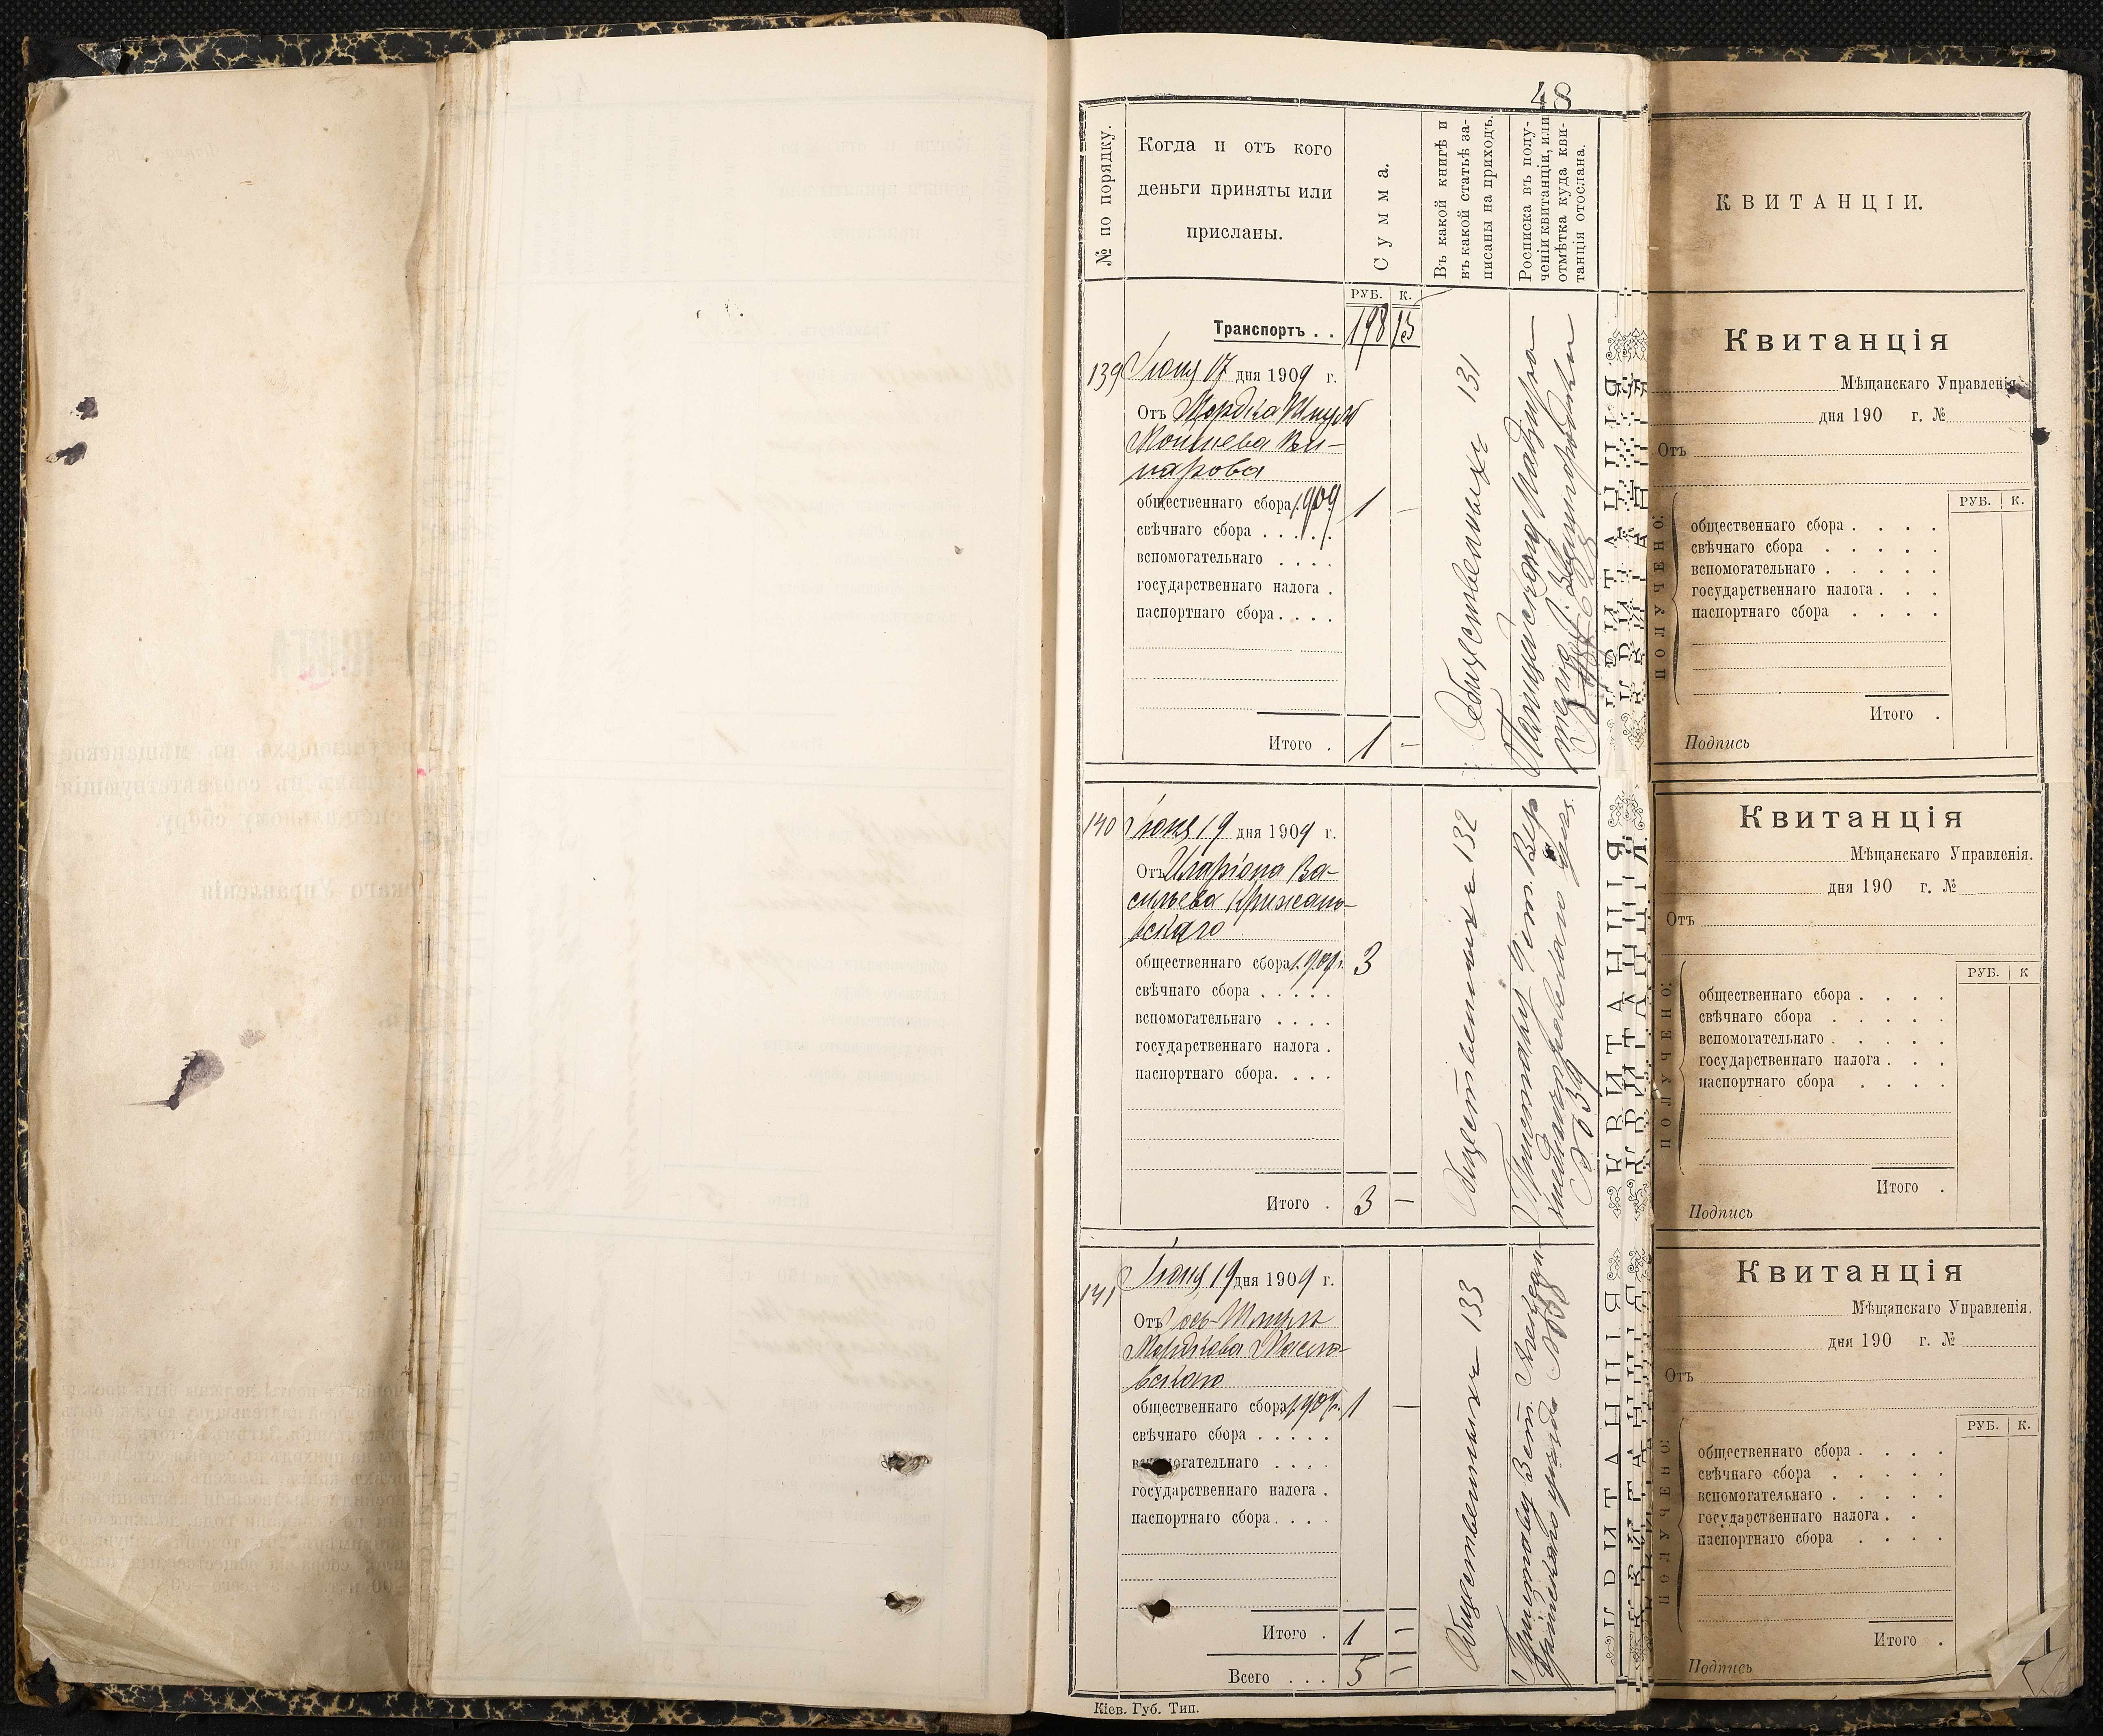 48
№ по порядку.
Когда и отъ кого
деньги приняты или
присланы.
Сумма.
Въ какой книгѣ и
въ какой статьѣ за-
писаны на приходъ.
Росписка въ полу-
ченіи квитанціи, или
отмѣтка куда кви-
танція отослана.
РУБ. К.
Транспортъ . . 198 13
139 Іюня 17 дня 1909 г.
Отъ Мордка Шмуля
Мошнева
общественнаго сбора 1909 1 —
свѣчнаго сбора . . . . .
вспомогательнаго . . . .
государственнаго налога .
паспортнаго сбора . . . .
Итого . 1 —
Общественныхъ 131
140 Іюня 19 дня 1909 г.
Отъ Иларіона Ва-
сильева Крижано-
вскаго
общественнаго сбора 1909 г. 3
свѣчнаго сбора . . . . .
вспомогательнаго . . . .
государственнаго налога .
паспортнаго сбора. . . .
Итого . 3 —
Общественныхъ 132
Приставу 4 ст.
№ 639
141 Іюня 19 дня 1909 г.
Отъ Іось-Шмуля
Мордкова Масло-
вскаго
общественнаго сбора 1909 г. 1 —
свѣчнаго сбора . . . . .
вспомогательнаго . . . .
государственнаго налога .
паспортнаго сбора . . . .
Итого . 1 —
Всего . . . 5 —
Общественныхъ 133
Приставу 3 ст.
уѣзда № 638
Кіев. Губ. Тип.
КВИТАНЦІЯ
КВИТАНЦІЯ
КВИТАНЦІЯ
КВИТАНЦІИ.
Квитанція
Мѣщанскаго Управленія.
дня 190 г. №
Отъ
ПОЛУЧЕНО:
РУБ. К.
общественнаго сбора . . . .
свѣчнаго сбора . . . . .
вспомогательнаго . . . . .
государственнаго налога . . .
паспортнаго сбора . . . .
Итого .
Подпись
Квитанція
Мѣщанскаго Управленія.
дня 190 г. №
Отъ
ПОЛУЧЕНО:
РУБ. К
общественнаго сбора . . . .
свѣчнаго сбора . . . . .
вспомогательнаго . . . . .
государственнаго налога . . .
паспортнаго сбора . . . .
Итого .
Подпись
Квитанція
Мѣщанскаго Управленія.
дня 190 г. №
Отъ
ПОЛУЧЕНО:
РУБ. К.
общественнаго сбора . . . .
свѣчнаго сбора . . . . .
вспомогательнаго . . . . .
государственнаго налога . .
паспортнаго сбора . . . .
Итого .
Подпись